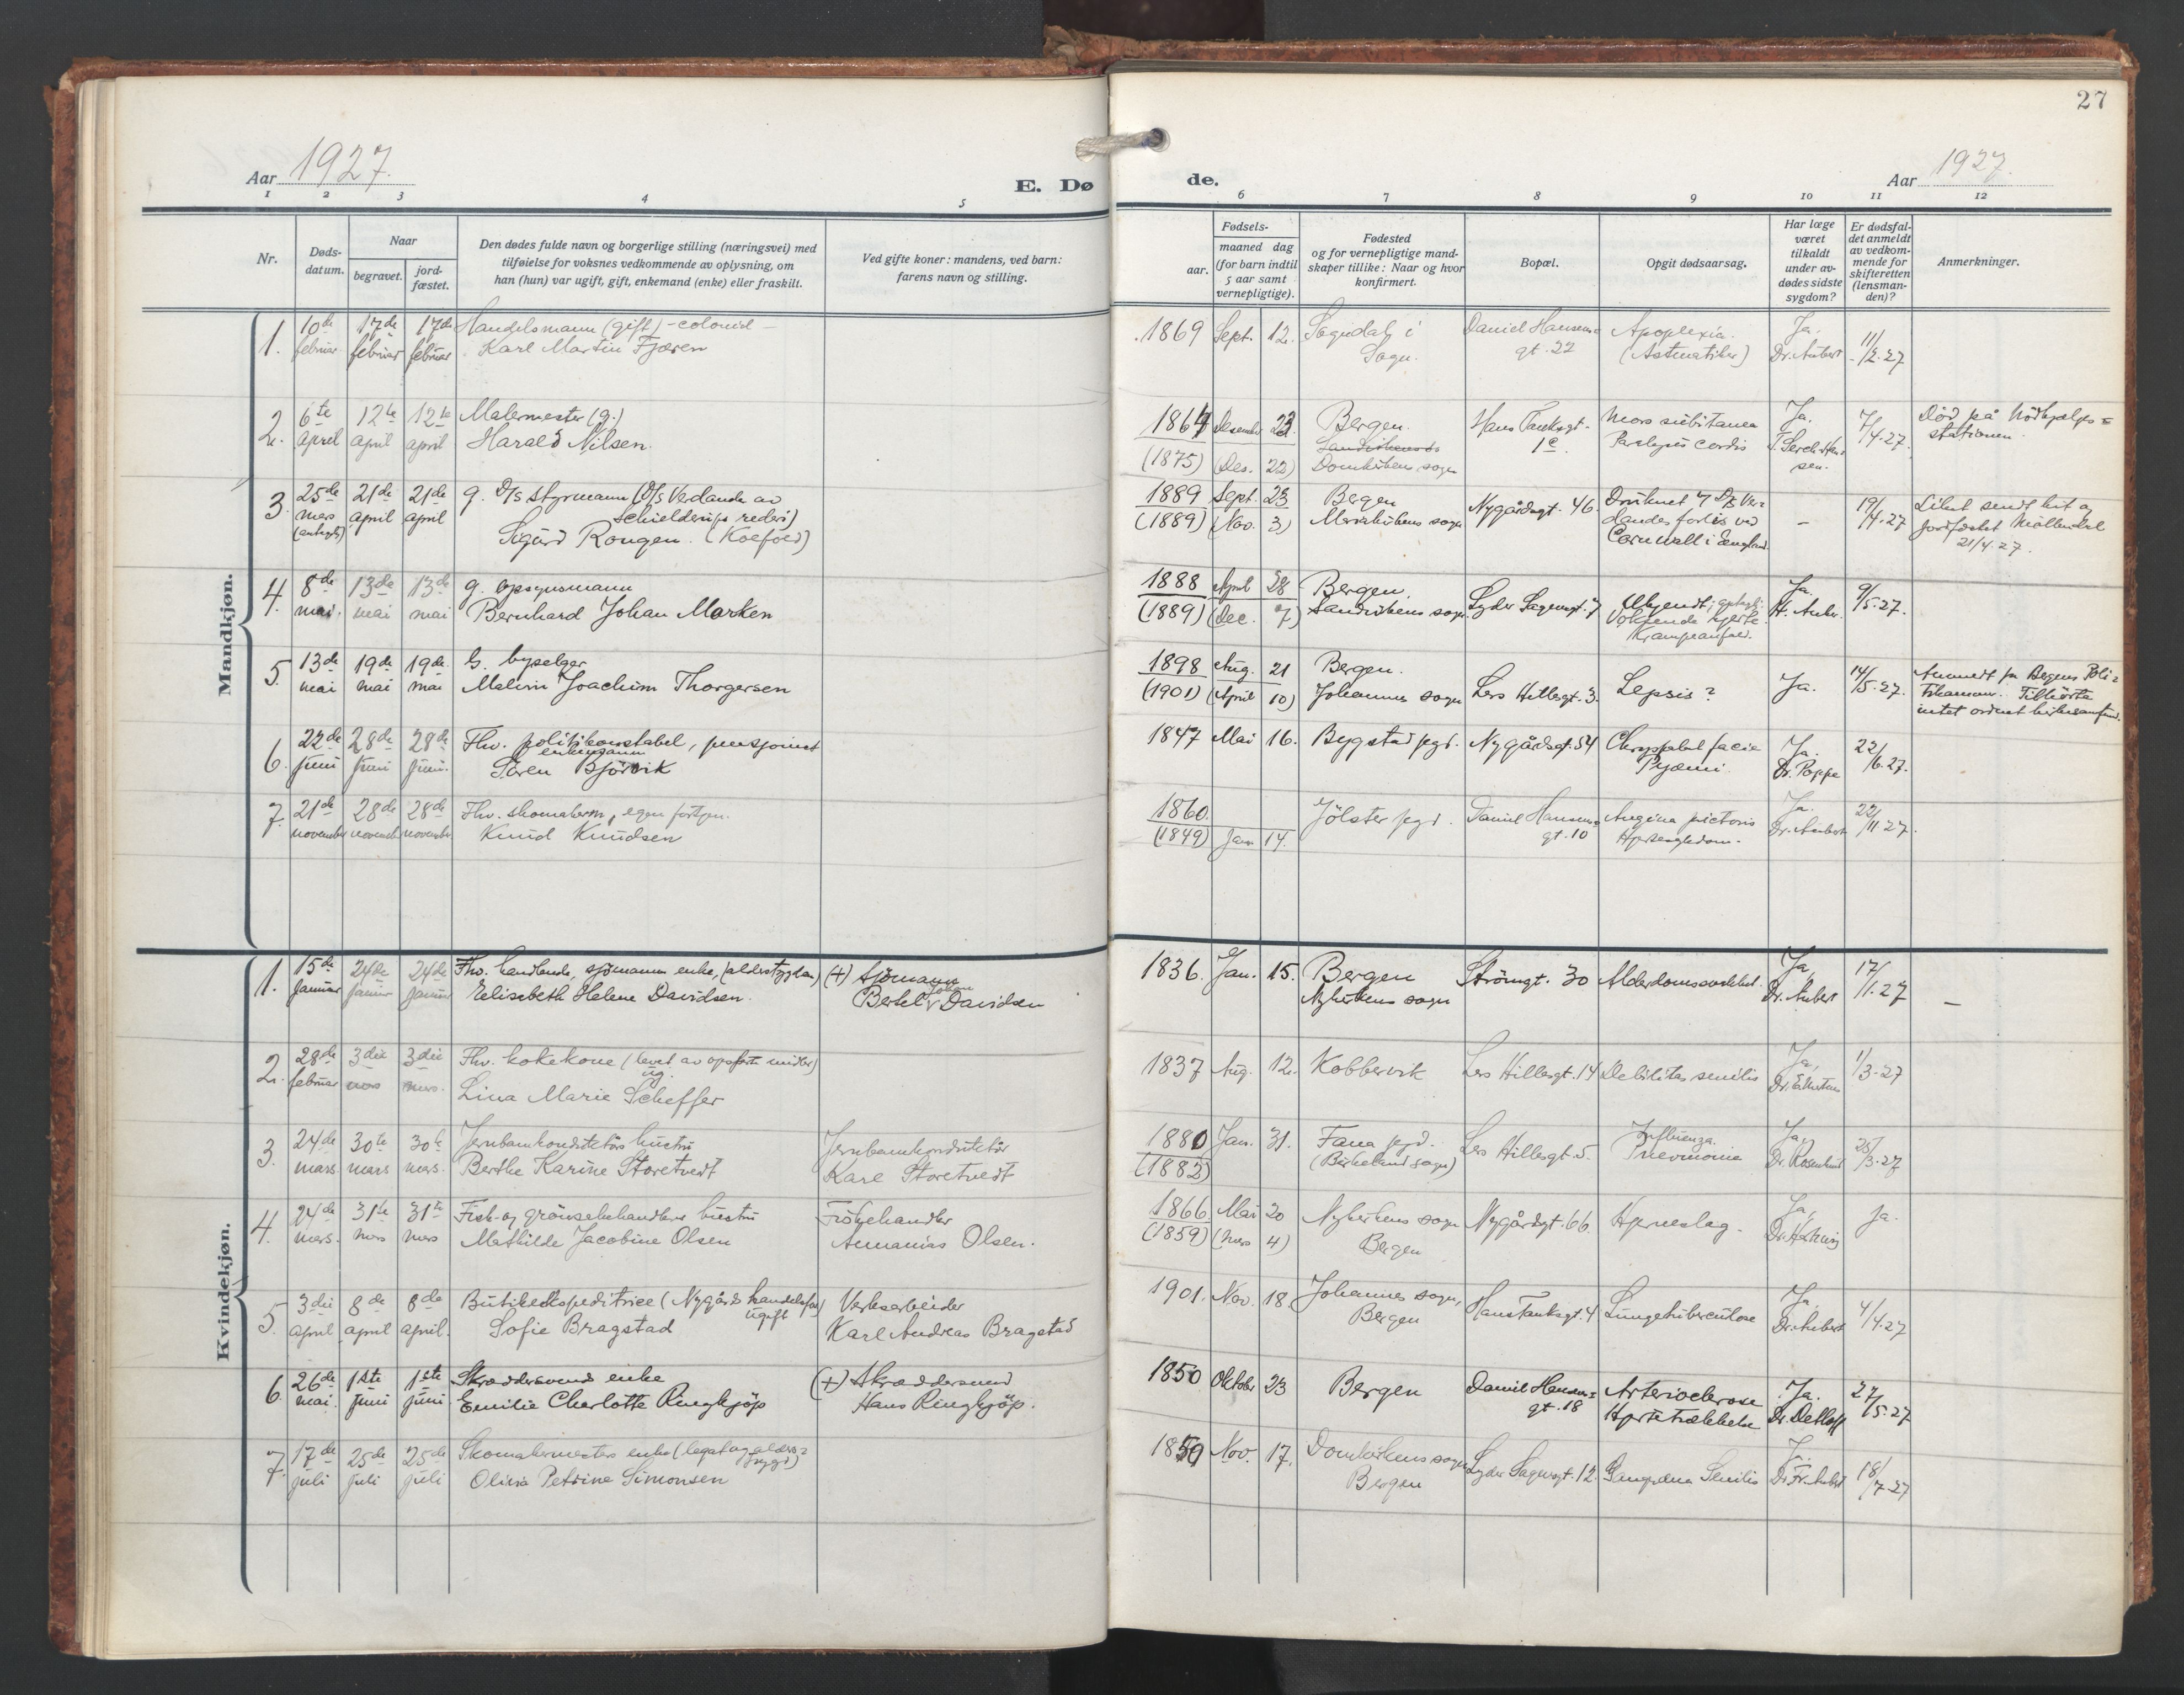 27
Aar 1927.
E. Dø
de.
Aar 1927.
1 2 3 4 5 6 7 8 9 10 11 12
Nr.
Døds-
datum.
Naar
begravet.
jord-
fæstet.
Den dødes fulde navn og borgerlige stilling (næringsvei) med
tilføielse for voksnes vedkommende av oplysning, om
han (hun) var ugift, gift, enkemand (enke) eller fraskilt.
Ved gifte koner: mandens, ved barn:
farens navn og stilling.
Fødsels-
aar.
maaned dag
(for barn indtil
5 aar samt
vernepligtige).
Fødested
og for vernepligtige mand-
skaper tillike: Naar og hvor
konfirmert.
Bopæl.
Opgit dødsaarsag.
Har læge
været
tilkaldt
under av-
dødes sidste
sygdom?
Er dødsfal-
det anmeldt
av vedkom-
mende for
skifteretten
(lensman-
den)?
Anmerkninger.
Mandkjøn.
1. 10de februar 17de februar 17de februar
Handelsmann (gift) - colonial -
Karl Martin Fjæren
1869 Sept. 12. Sogndal i
Sogn.
Daniel Hansens=
gt. 22
Apoplexia.
(Astmatiker)
Ja.
Dr. Aubert
11/2.27
2. 6te april 12te april 12te april
Malermester (g.)
Harald Nilsen.
1864 Desember 23. Bergen.
(1875) (Des. 22) Domkirkens sogn
Hans Tanksgt.
1c.
Mors subitanea
Paralysis cordis
Ja.
7/4.27.
Død på Nødhjælps=
stationen.
3. 25de mars 21de april 21de april
g. D/s styrmann (D/s Vedande av
Schielderups rederi)
Sigurd Rongen. (Koefoed)
1889 Sept. 23 Bergen
(1889) (Nov. 3) Mariakirkens sogn
Nygårdsgt. 46.
Druknet v/ D/s Ve=
landes forlis ved
Cornwall i England.
-
19/4.27
Liket sendt hit og
jordfæstet Møllendal
21/4.27.
4. 8de mai. 13de mai 13de mai
g. opsynsmann
Bernhard Johan Marken
1888 April 28 Bergen.
(1889) (Dec. 7) Sandvikens sogn
Lyder Sagensgt. 7
Ukjendt;
Krampeanfald.
Ja.
H. Auber.
9/5.27.
5. 13de mai 19de mai 19de mai
G. byselger
Malvin Joachim Thorgersen
1898 Aug. 21 Bergen.
(1901) (April 10) Johannes sogn
Lars Hillesgt. 3.
Sepsis?
Ja.
14/5.27.
Anmeldt fra Bergens Poli=
tikammer. Tilhörte
intet ordnet kirkesamfund.
6. 22de juni 28de juni 28de juni.
Fhv. politikonstabel, pensjonist
enkemann
Sören Björvik
1847 Mai 16. Bygstad pgd. Nygårdsgt. 54
Pyæmi.
Ja.
Dr. Poppe
22/6.27.
7. 21de november 28de november 28de november.
Fhv. skomakerm, egen forretn.
Knud Knudsen
1860.
(1849) Jan 14. Jölster pgd.
Daniel Hansens=
gt. 10
Angina pictoris
Hjertesygdom.
Ja.
Dr. Aubert
22/11.27.
Kvindekjøn.
1. 15de januar 24de januar 24de januar
Fhv. handlende, sjömanns enke, (alderstrygden)
Elisabeth Helene Davidsen.
(+) sjömann
Bertel Johan Davidsen
1836. Jan. 15. Bergen
Nykirkens sogn
Strömgt. 30
Alderdomssvakhet.
Ja,
Dr. Aubert
17/1.27
-
2. 28de februar 3die mars 3die mars.
Fhv. kokekone (levet av opsparte midler)
ug.
Lina Marie Scheffer
1837 Aug. 12. Kobbervik
Lars Hillesgt. 14
Debilitas senilis
Ja,
1/3.27
3. 24de mars 30te mars 30te mars.
Jernbanekonduktörs hustru
Berthe Karine Storetvedt
Jernbanekonduktör
Karl Storetvedt
1880 Jan. 31. Fana pgd.
(1882) (Birkeland sogn)
Lars Hillesgt. 5.
Influenza.
Pnevmonia
Ja,
25/3.27
4. 24de mars. 31te mars 31te mars
Fisk- og grönsakhandlers hustru
Mathilde Jacobine Olsen
Fiskehandler
Annanias Olsen.
1866 Mai 20 Nykirkens sogn
(1859) (Mars 4) Bergen
Nygårdsgt. 66.
Hjerneslag.
Ja,
Ja.
5. 3die april 8de april 8de april.
Butikekspeditrice (Nygårds handelsfor)
ugift
Sofie Bragstad
Verksarbeider
Karl Andreas Bragstad
1901. Nov. 18. Johannes sogn,
Bergen
Hans Tanksgt. 4
Lungetuberculose
Ja,
Dr. Aubert
4/4.27
6. 26de mai. 1ste juni 1ste juni
Skræddersvends enke
Emilie Charlotte Ringkjöp
(+) Skræddersvend
Hans Ringkjöp.
1850 Oktober 23 Bergen
Daniel Hansens=
gt. 18
Arteriosclerose
Hjertelammelse
Ja.
Dr. Detloff
27/5.27
7. 17de juli 25de juli 25de juli
Skomakermesters enke (legat og alders=
trygd)
Olivia Petrine Simonsen
1850 Nov. 17. Domkirkens sogn
Bergen
Lyder Sagensgt. 12.
Gangræna Senilis
Ja.
Dr. Fr. Aubert
18/7.27